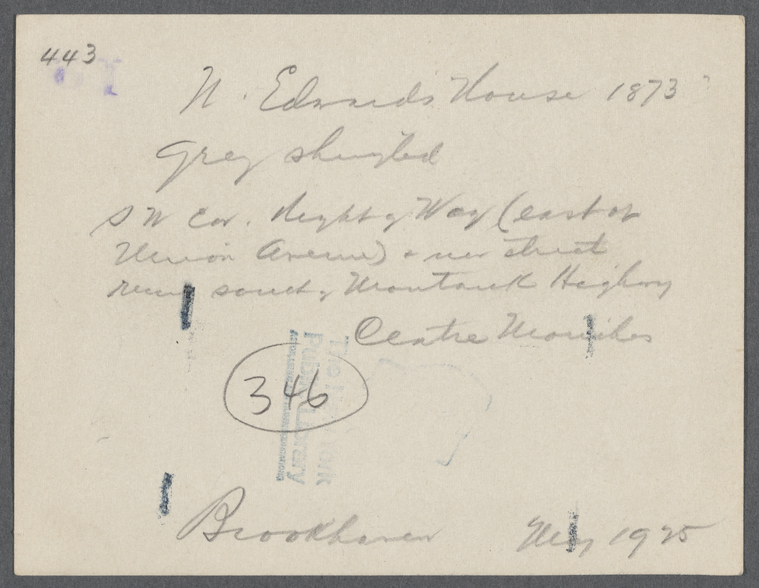 443
N. Edwards House 1873
Grey shingled
SW cor. Right of Way (east of
Union Avenue) + new street
south of Montauk Highway
Centre Moriches
346
The New York
Public Library
Brookhaven May 1925